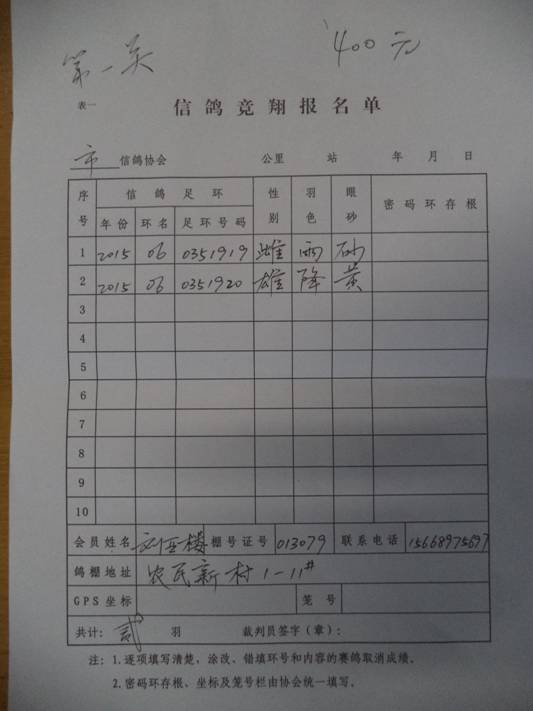 第一关
400元
表一
信鸽竞翔报名单
市 信鸽协会 公里 站 年 月 日
序号 信鸽足环 性别 羽色 眼砂 密码环存根
年份 环名 足环号码
1 2015 06 0351919 雌 雨 砂
2 2015 06 0351920 雄 降 黄
3
4
5
6
7
8
9
10
会员姓名 楼 棚号证号 013079 联系电话 15668975697
鸽棚地址 农民新村1-11#
GPS坐标 笼号
共计: 贰 羽 裁判员签字(章):
注: 1.逐项填写清楚,涂改、错填环号和内容的赛鸽取消成绩。
2.密码环存根、坐标及笼号栏由协会统一填写。